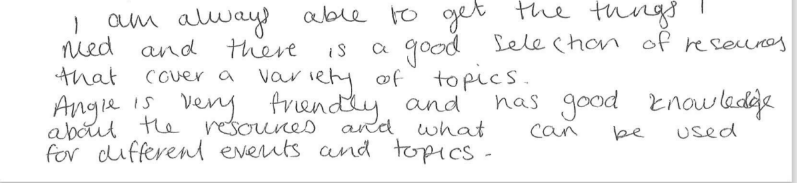 I am always able to get the things I
need and there is a good selection of resources
that cover a variety of topics.
Angie is very friendly and has good knowledge
about the resources and what can be used
for different events and topics.